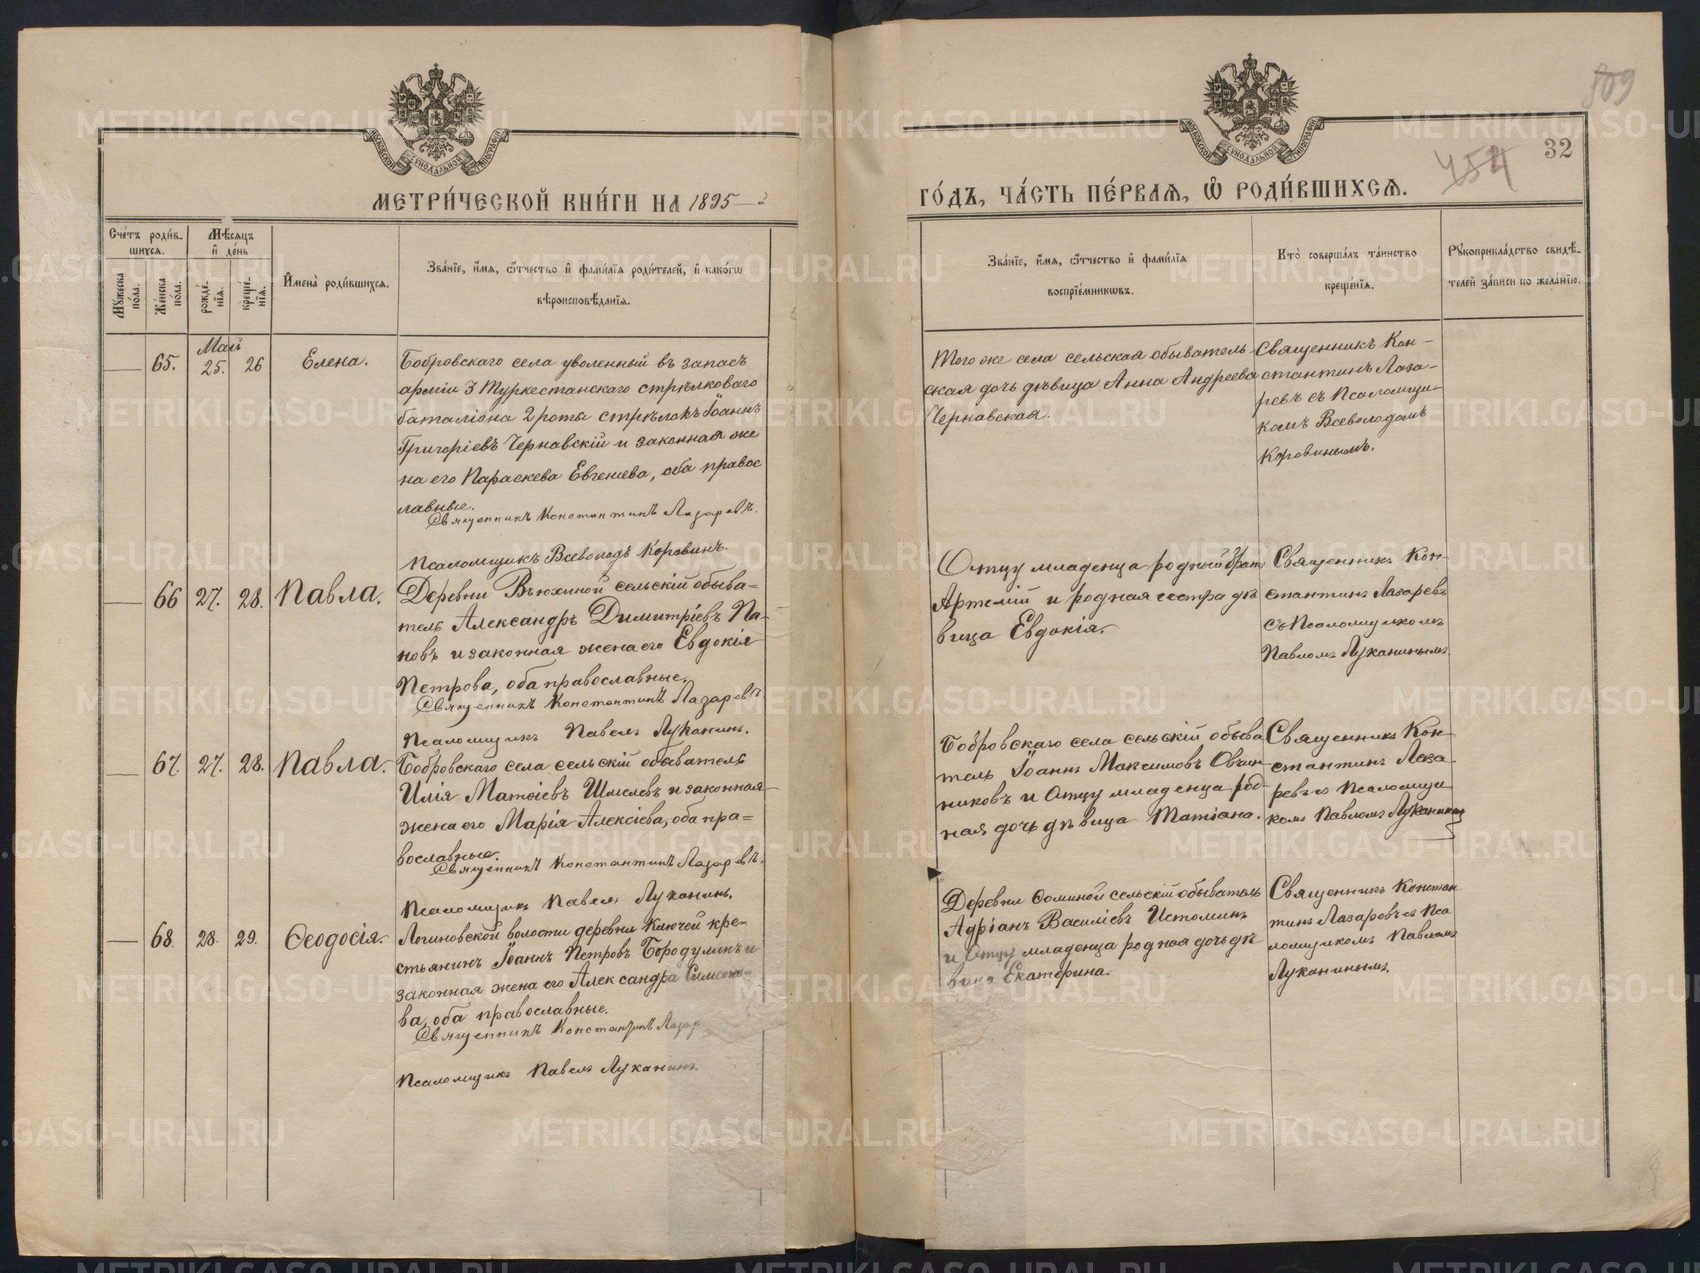 809
32
454
МЕТРИ́ЧЕСКОЙ КНИ́ГИ НА 1895
ГО́ДЪ, ЧА́СТЬ ПЕ́РВАЯ, Ѽ РОДИ́ВШИХСЯ.
Сче́тъ роди́в-
шихся.
Мѣ́сяцъ
и҆ де́нь
Му́жеска пола.
Же́нска пола.
рожде́-
нїя.
креще́-
нїя.
И҆мена̀ роди́вшихся.
Зва́нїе, и҆́мя, ѻ҆́тчество и҆ фами́лїя роди́телей, и҆ како́гѡ
вѣроисповѣ́данїя.
Зва́нїе, и҆́мя, ѻ҆́тчество и҆ фами́лїя
воспрїе́мникѡвъ.
Кто̀ соверша́лъ та́инство
креще́нїя.
Рꙋкоприкла́дство свидѣ́-
телей за́писи по жела́нїю.
Май
65. 25. 26 Елена.
Бобровскаго села уволенный въ запасъ
арміи 3 Туркестанскаго стрѣлковаго
баталіона 2 роты стрѣлокъ Іоаннъ
Григоріевъ Чернавскій и законная же
на его Параскева Евгениева, оба правос
лавные.
Священникъ Константинъ Лазаревъ.
Псаломщикъ Всеволодъ Коровинъ.
Того же села сельская обыватель
ская дочь дѣвица Анна Андреева
Чернавская.
Священникъ Кон-
стантинъ Лаза-
ревъ съ Псаломщи-
комъ Всеволодомъ
Коровинымъ.
66 27. 28. Павла.
Деревни Вьюхиной сельскій обыва=
тель Александръ Димитріевъ Па-
новъ и законная жена его Евдокія
Петрова, оба православные.
Священникъ Константинъ Лазаревъ
Псаломщикъ Павелъ Луканинъ.
Отцу младенца родной братъ
Артемій и родная сестра дѣ
вица Евдокія.
Священникъ Кон-
стантинъ Лазаревъ
съ Псаломщикомъ
Павломъ Луканинымъ.
67. 27. 28. Павла.
Бобровскаго села сельскій обыватель
Илія Матѳіевъ Шмелевъ и законная
жена его Марія Алексіева, оба пра=
вославные.
Священникъ Константинъ Лазаревъ.
Псаломщикъ Павелъ Луканинъ.
Бобровскаго села сельскій обыва
тель Іоаннъ Максимовъ Овчин
никовъ и Отцу младенца род
ная дочь дѣвица Татіана.
Священникъ Кон-
стантинъ Лаза-
ревъ съ Псаломщи
комъ Павломъ Луканинымъ
68. 28. 29. Ѳеодосія.
Логиновской волости деревни Ключей кре-
стьянинъ Іоаннъ Петровъ Бородулинъ и
законная жена его Александра Симеоно-
ва, оба православные.
Священникъ Константинъ Лазар
Псаломщикъ Павелъ Луканинъ.
Деревни Ѳоминой сельскій обыватель
Адріанъ Василіевъ Истоминъ
и Отцу младенца родная дочь дѣ
вица Екатерина.
Священникъ Констан
тинъ Лазаревъ съ Пса
ломщикомъ Павломъ
Луканинымъ.
METRIKI.GASO-URAL.RU